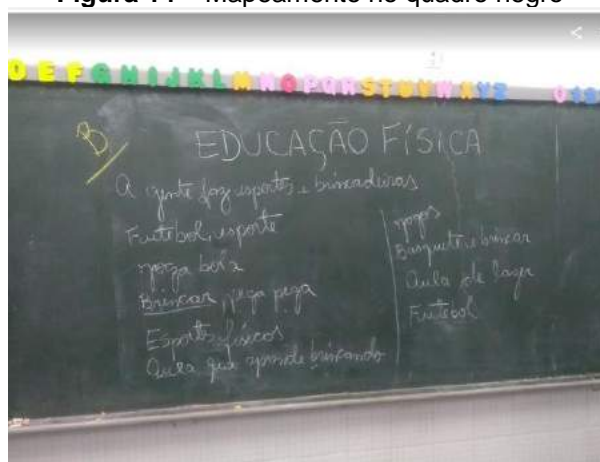 Mapeamento no quadro negro
D E F G H I J K L M N O P Q R S T U V W X Y Z 0 1 2
B
EDUCAÇÃO FÍSICA
A gente faz esportes e brincadeiras
Futebol, esporte
bola
Brincar, pega pega
Esportes físicos
Aula que aprende brincando
jogos
Basquete e brincar
Aula de lazer
Futebol